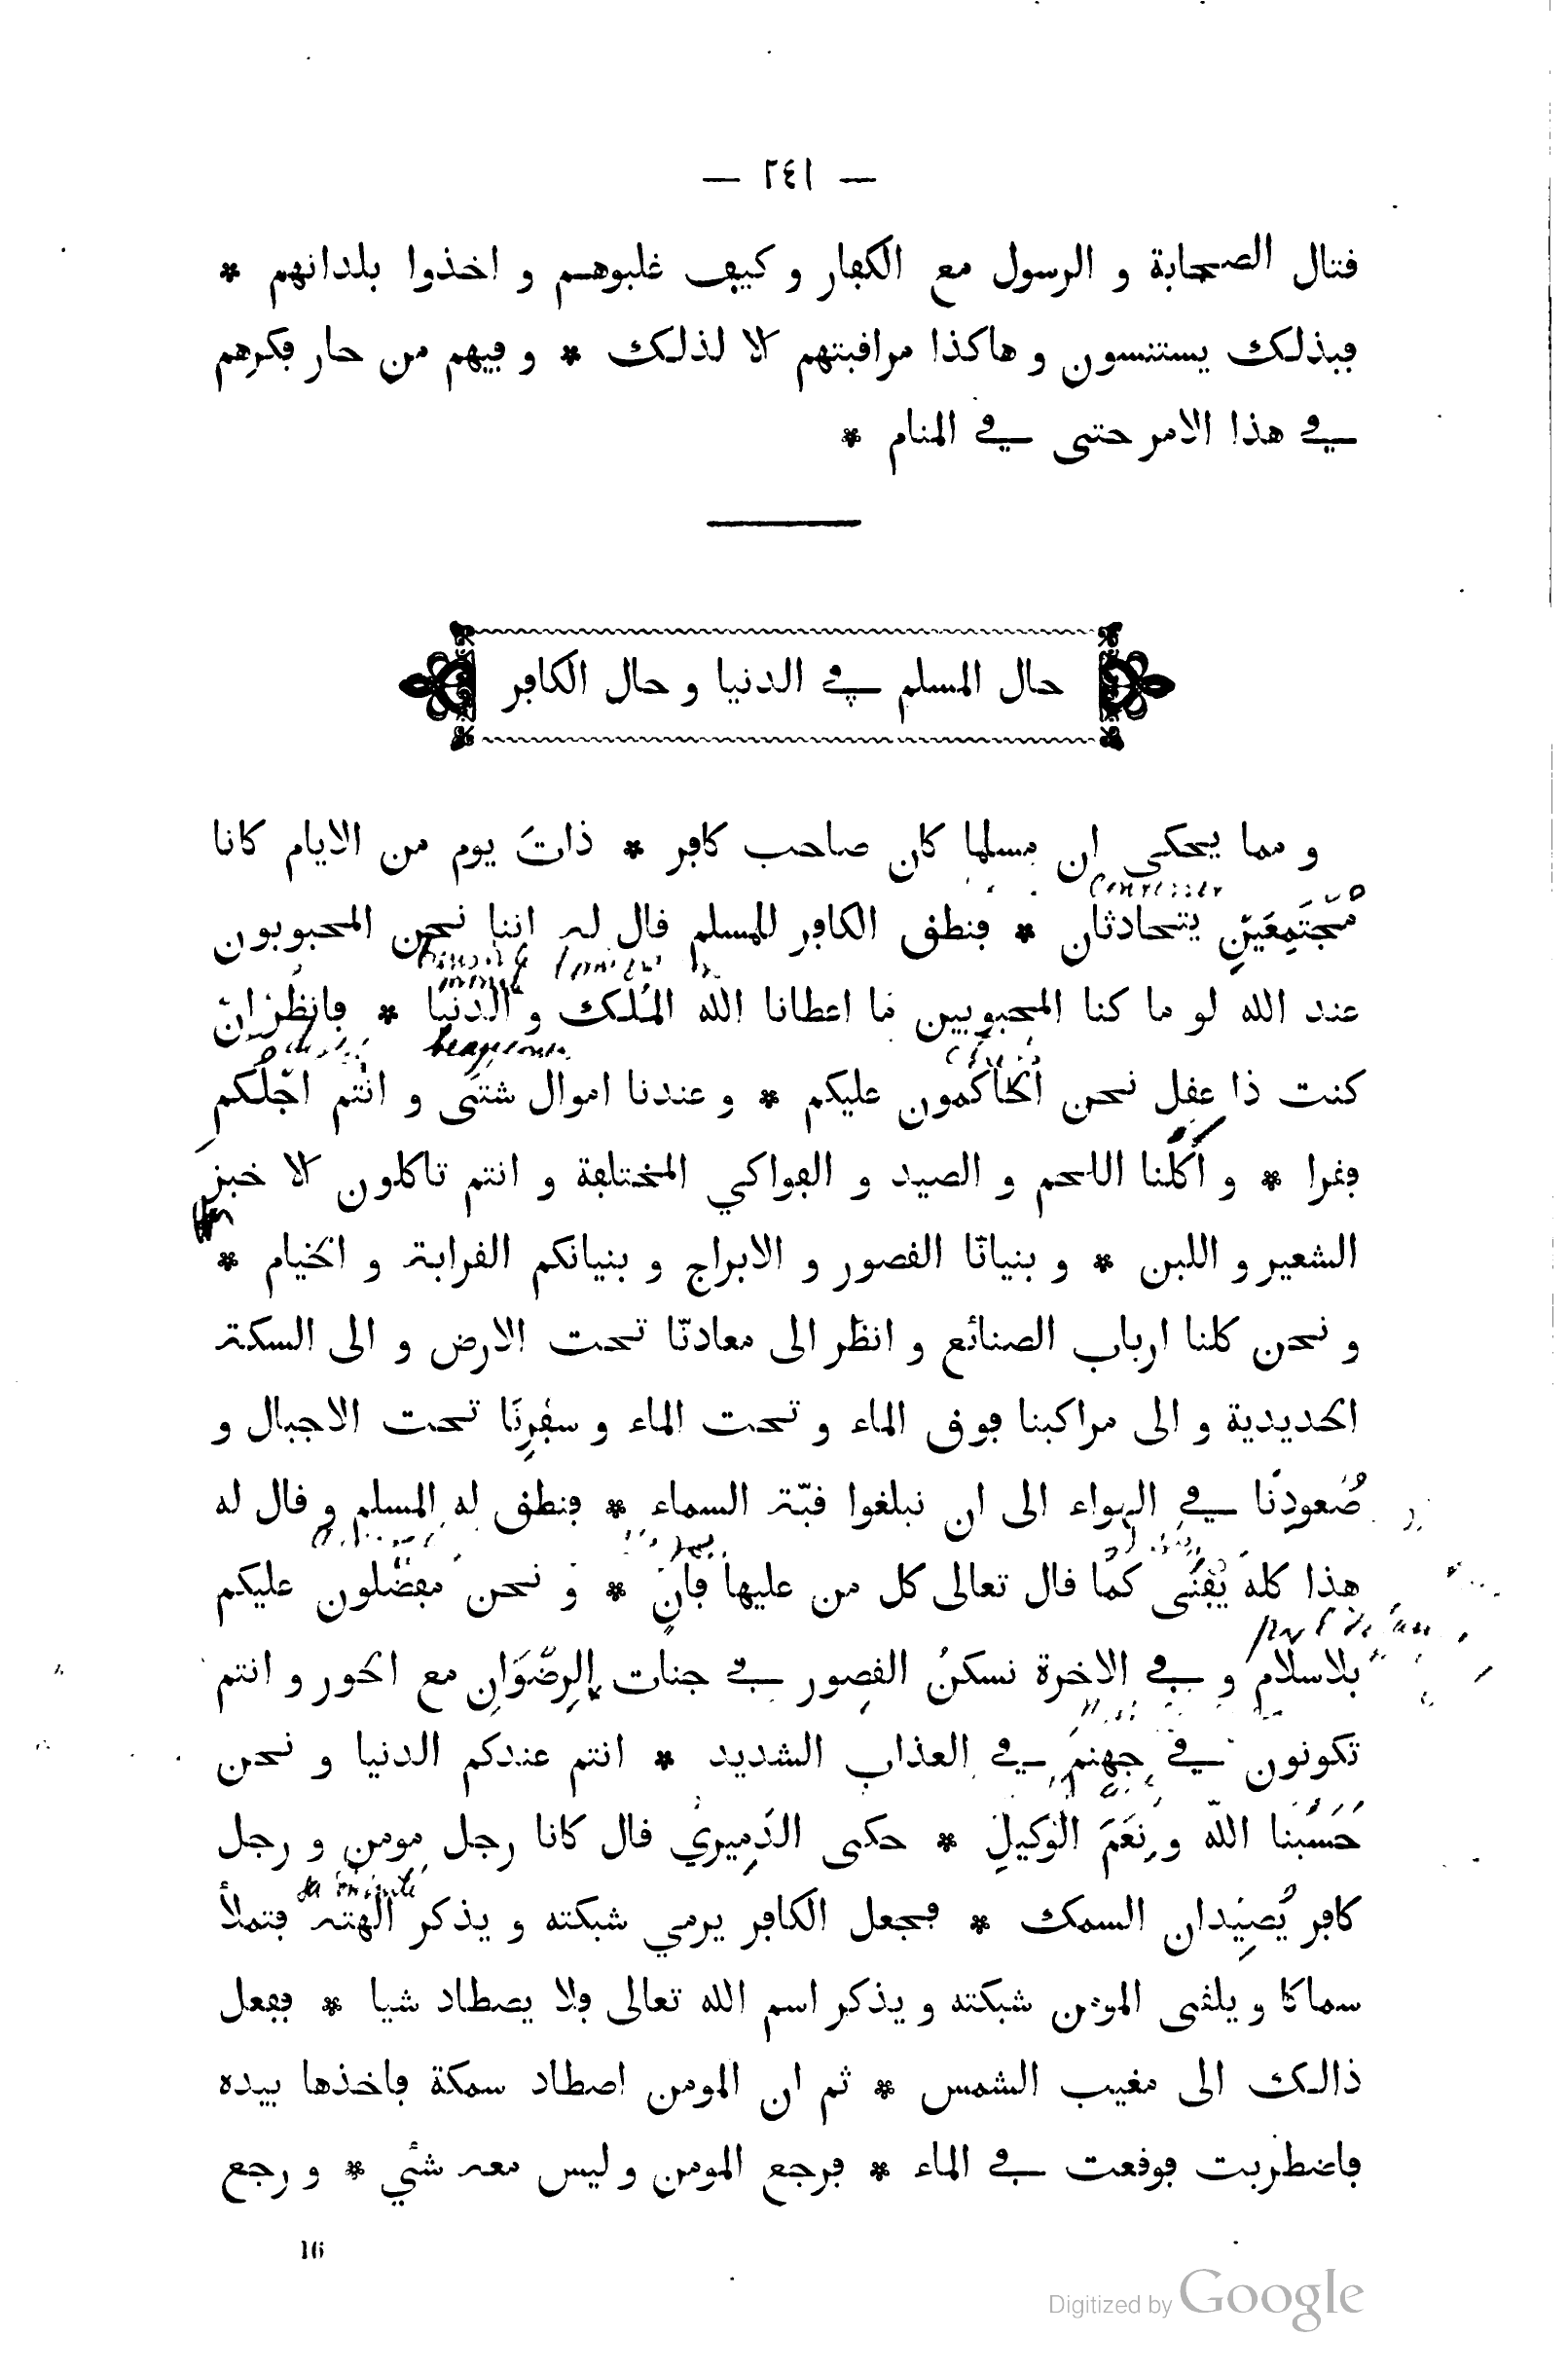 — ٢٤١ —
قتال الصحابة و الرسول مع الكفار و كيف غلبوهم و اخذوا بلدانهم *
فبذلك يستنسون و هاكذا مراقبتهم الا لذلك * و فيهم من حار فكرهم
في هذا الامر حتى في المنام *
حال المسلم في الدنيا و حال الكافر
و مما يحكى ان مسلما كان صاحب كافر * ذاتَ يوم من الايام كانا
مُجْتَمِعَيْنِ يتحادثان * فنطق الكافر للمسلم قال له اننا نحن المحبوبون
عند الله لو ما كنا المحبوبين مَا اعطانا الله المُلك و الدنيا * فانظُرْ انْ
beaucoup
كنت ذا عقل نحن اَلحَاكُمون عليكم * و عندنا اموال شتَّى و انْتم اجُلّكم
فقرا * و اَكَلْنا اللحم و الصيد و الفواكي المختلفة و انتم تاكلون الا خبز
الشعير و اللبن * و بنياننَا القصور و الابراج و بنيانكم القرابة و الخيام *
و نحن كلنا ارباب الصنائع و انظر الى معادنّا تحت الارض و الى السكة
الحديدية و الى مراكبنا فوق الماء و تحت الماء و سفْرِنَا تحت الاجبال و
صُعودِنَا في الهواء الى ان نبلغوا قبّة السماء * فنطق له المسلم و قال له
هذا كله يَفْنَى كمَا قال تعالى كل من عليها فانٍ * و نحن مفضَّلون عليكم
بلاسلام و في الاخرة نسكنُ القصور في جنات الرِضْوَانِ مع الحور و انتم
تكونون في جهنمَ في العذاب الشديد * انتم عندكم الدنيا و نحن
حَسْبُنا اللّٰه و نِعْمَ الْوَكيلِ * حكى الدَمِيريْ قال كانا رجل مومن و رجل
sa divinité
كافر يُصِيْدان السمك * فجعل الكافر يرمي شبكته و يذكر الهته فتملأ
سماكا و يلقى المومن شبكته و يذكر اسم الله تعالى فلا يصطاد شيا * ففعل
ذالك الى مغيب الشمس * ثم ان المومن اصطاد سمكة فاخذها بيده
فاضطربت فوقعت في الماء * فرجع المومن و ليس معه شئي * و رجع
16
Digitized by Google